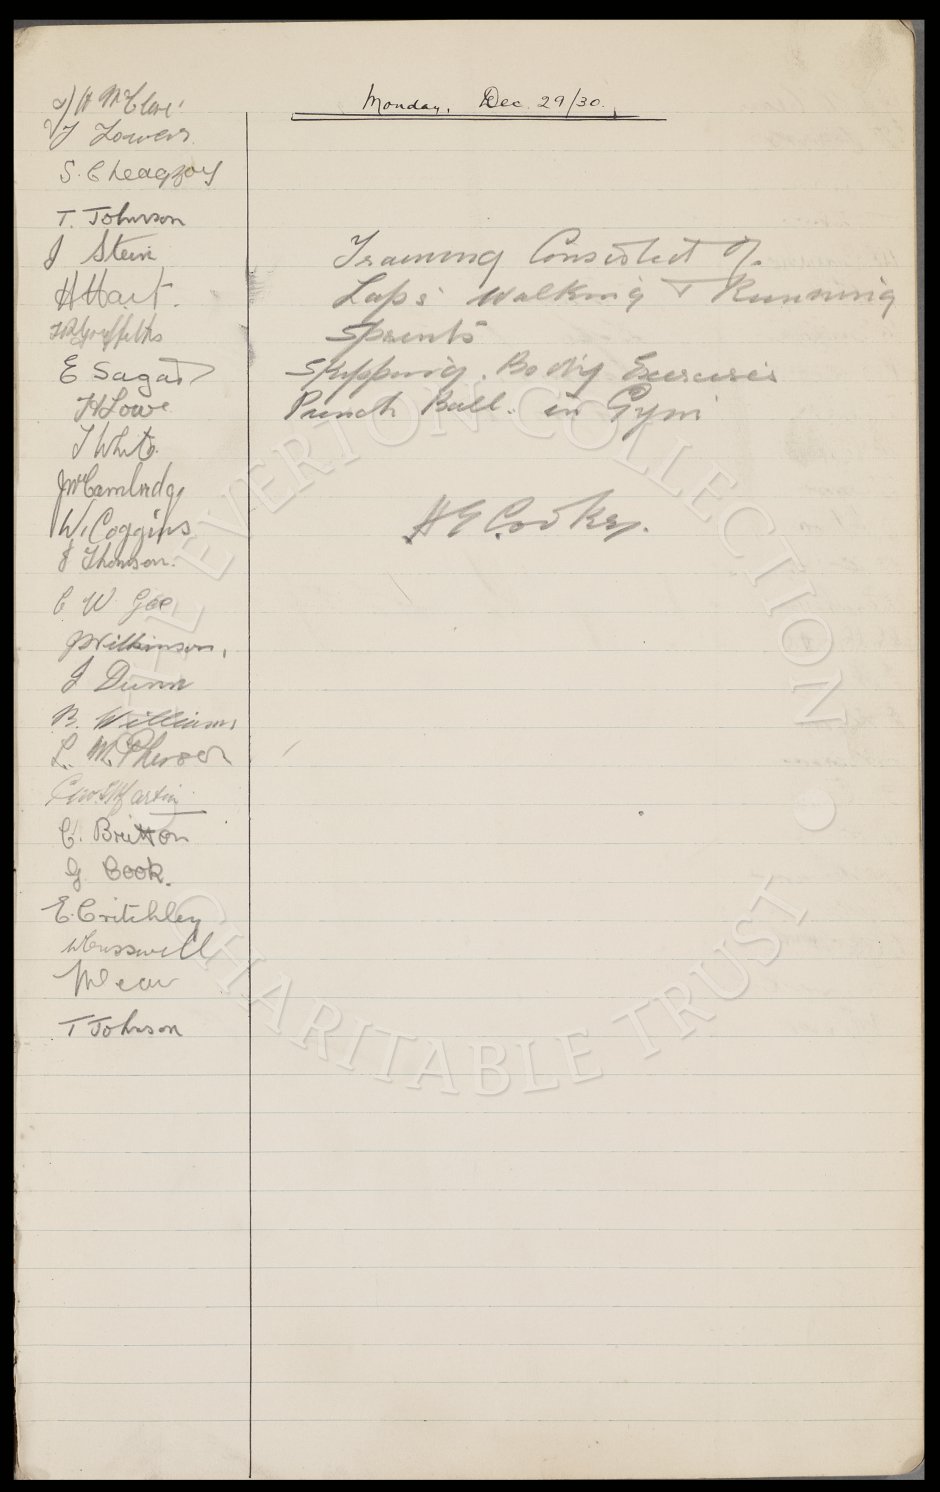 Monday, Dec. 29/30.
J H McClure
T Lowers
S. C Leagfoy
T. Johnson
J Stein
H Hart.
T P Griffiths
E Sagar
H Lowe
T White
J McCambridge
W. Coggins
J Thomson.
C W Gee
J Wilkinson,
J Dunn
B. Williams
L. McPherson
Geo. S Martin
C. Britton
G Cook.
E. Critchley
W Cresswell
T Johnson
Training Consisted of.
Laps walking & Running
Sprints
Skipping. Body Exercises
Punch Ball. in Gym
H E Cooke.
THE EVERTON COLLECTION
CHARITABLE TRUST